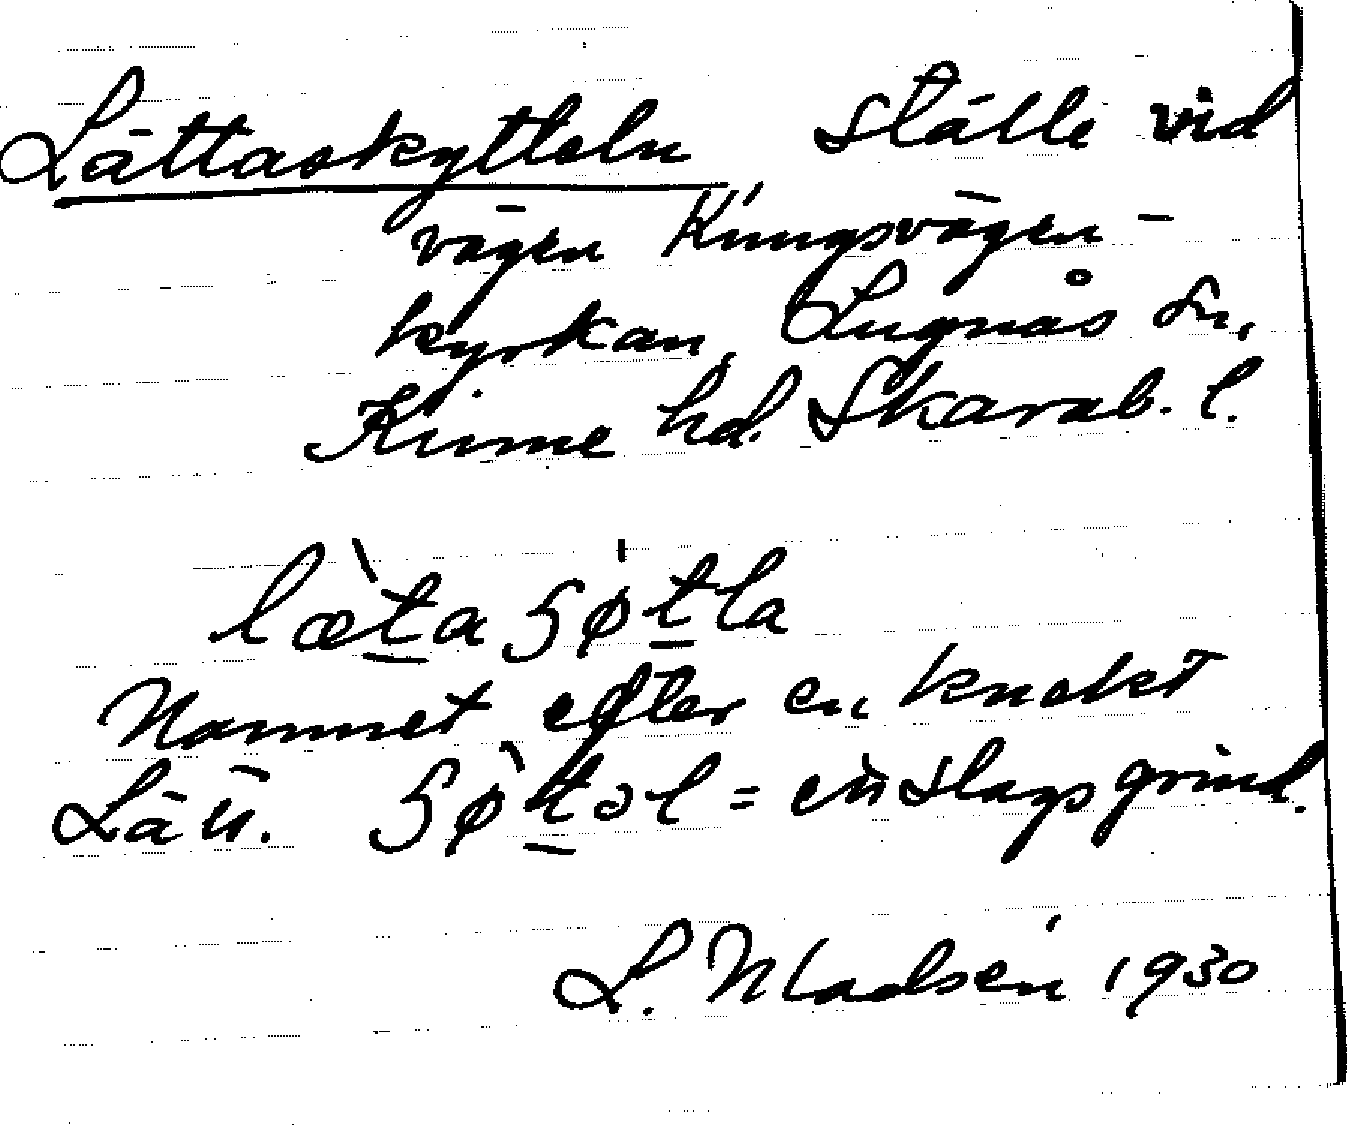 Lättaskytteln Ställe vid
vägen Kungsvägen -
kyrkan, Lugnås sn,
Kinne hd. Skarab. l.
lætaʂøtla
Namnet efter en knekt
Lätt. ʂøtəl = en slags grind.
L. 1930